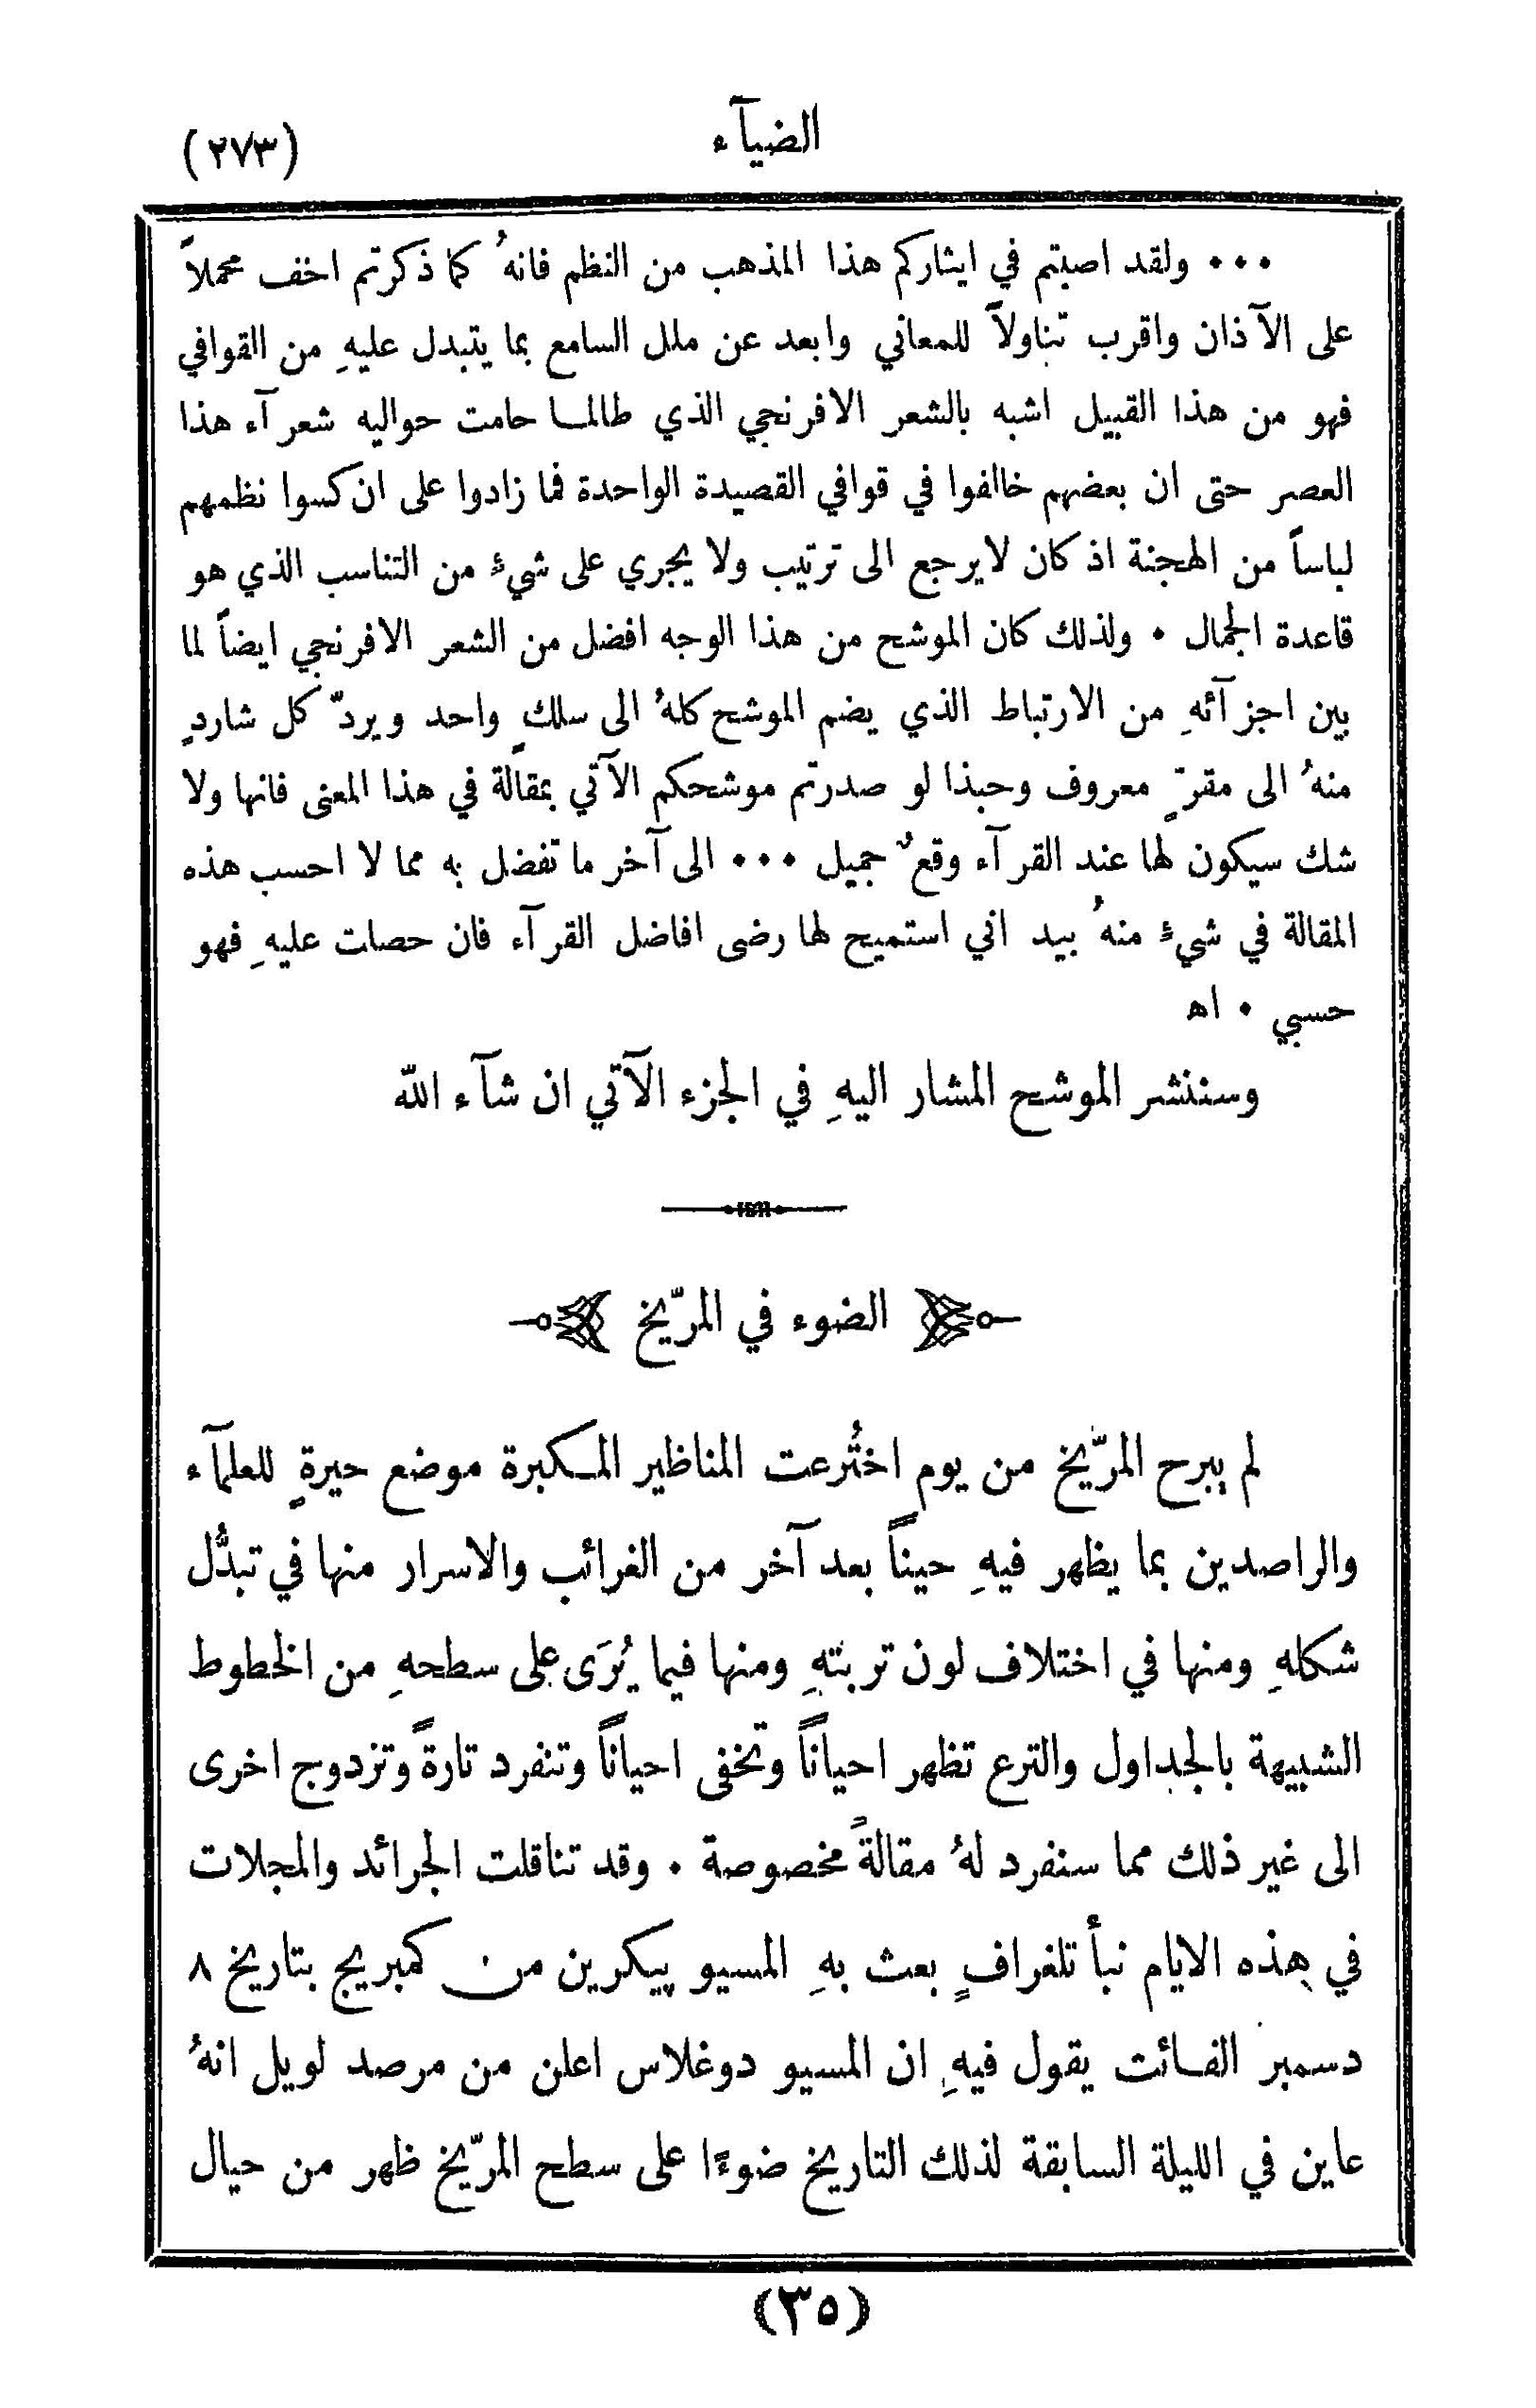 الضيآء
(٢٧٣)
٠٠٠ ولقد اصبتم في ايثاركم هذا المذهب من النظم فانهُ كما ذكرتم اخف محملاً
على الآذان واقرب تناولاً للمعاني وابعد عن ملل السامع بما يتبدل عليهِ من القوافي
فهو من هذا القبيل اشبه بالشعر الافرنجي الذي طالما حامت حواليه شعرآء هذا
العصر حتى ان بعضهم خالفوا في قوافي القصيدة الواحدة فما زادوا على ان كسوا نظمهم
لباساً من الهجنة اذ كان لا يرجع الى ترتيب ولا يجري على شيءٍ من التناسب الذي هو
قاعدة الجمال ٠ ولذلك كان الموشح من هذا الوجه افضل من الشعر الافرنجي ايضاً لما
بين اجزآئهِ من الارتباط الذي يضم الموشح كلهُ الى سلكٍ واحد ويردّ كل شاردٍ
منهُ الى مقرّ ٍ معروف وحبذا لو صدرتم موشحكم الآتي بمقالة في هذا المعنى فانها ولا
شك سيكون لها عند القرآء وقعٌ جميل ٠٠٠ الى آخر ما تفضل به مما لا احسب هذه
المقالة في شيءٍ منهُ بيد اني استميح لها رضى افاضل القرآء فان حصلت عليهِ فهو
حسبي ٠ اه
وسننشر الموشح المشار اليهِ في الجزء الآتي ان شآء الله
الضوء في المرّيخ
لم يبرح المرّيخ من يوم اختُرعت المناظير المكبرة موضع حيرةٍ للعلمآء
والراصدين بما يظهر فيهِ حيناً بعد آخر من الغرائب والاسرار منها في تبدُّل
شكلهِ ومنها في اختلاف لون تربتهِ ومنها فيما يُرَى على سطحهِ من الخطوط
الشبيهة بالجداول والترع تظهر احياناً وتخفى احياناً وتنفرد تارةً وتزدوج اخرى
الى غير ذلك مما سنفرد لهُ مقالةً مخصوصة ٠ وقد تناقلت الجرائد والمجلات
في هذه الايام نبأ تلغرافٍ بعث بهِ المسيو پيكرين من كمبريج بتاريخ ٨
دسمبر الفائت يقول فيهِ ان المسيو دوغلاس اعلن من مرصد لويل انهُ
عاين في الليلة السابقة لذلك التاريخ ضوءًا على سطح المرّيخ ظهر من حيال
(٣٥)